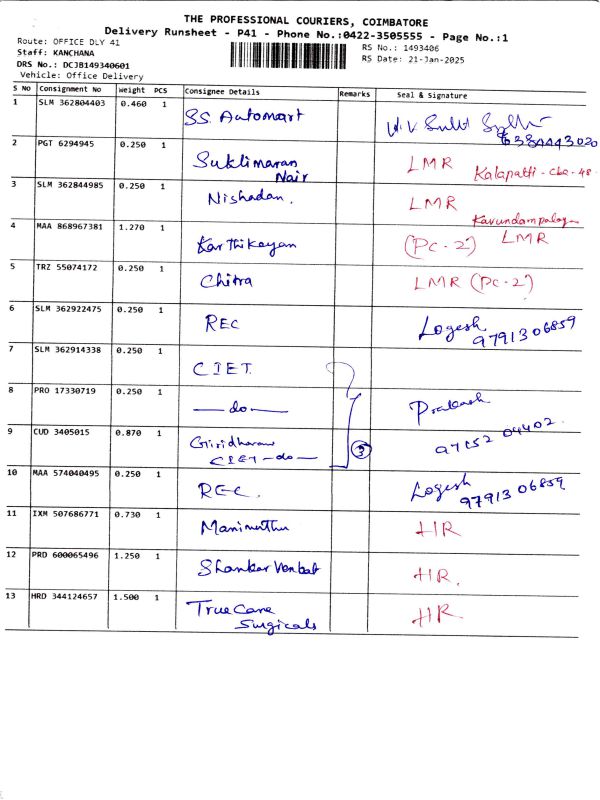 THE PROFESSIONAL COURIERS, COIMBATORE
Delivery Runsheet - P41 - Phone No.:0422-3505555 - Page No.:1
Route: OFFICE DLY 41
RS No.: 1493406
Staff: KANCHANA
RS Date: 21-Jan-2025
DRS No.: DCJB149340601
Vehicle: Office Delivery
S No Consignment No Weight PCS Consignee Details Remarks Seal & Signature
1 SLM 362804403 0.460 1 SS. Automart
6384443020
2 PGT 6294945 0.250 1 Sukumaran Nair LMR Kalapatti - Cbe - 48
3 SLM 362844985 0.250 1 Nishadan. LMR Kavundampalayam
4 MAA 868967381 1.270 1 Karthikeyan (PC-2) LMR
5 TRZ 55074172 0.250 1 Chitra LMR (PC-2)
6 SLM 362922475 0.250 1 REC Logesh 9791306859
7 SLM 362914338 0.250 1 CIET
8 PRO 17330719 0.250 1 — do — Prakash
9 CUD 3405015 0.870 1 Giridharan CIET - do - 3
10 MAA 574040495 0.250 1 REC. Logesh 9791306859
11 IXM 507686771 0.730 1 Manimuthu HR
12 PRD 600065496 1.250 1 Shankar Venkat HR.
13 HRD 344124657 1.500 1 True Care Surgicals HR.